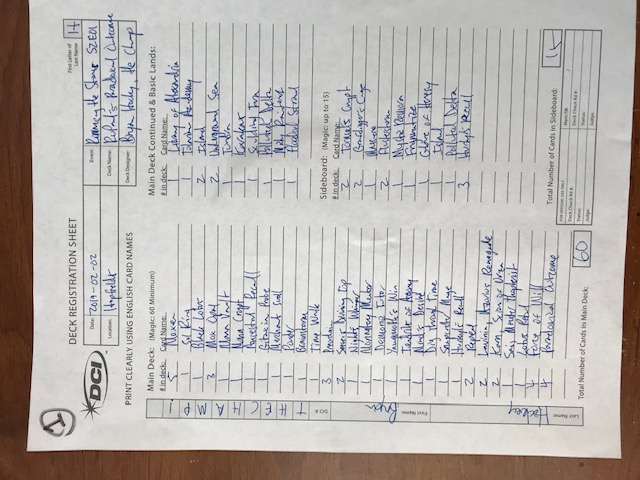 1
DECK REGISTRATION SHEET
First Letter of Last Name H
DCI
Date: 2019-02-02
Event: Running the Stones S2E01
Location: Hopfields
Deck Name: Rupaul's Paradoxical Outcome
Deck Designer: Bryan Hockey, the Champ
PRINT CLEARLY USING ENGLISH CARD NAMES
Main Deck: (Magic: 60 Minimum)
# in deck: Card Name:
5 Moxen
1 Sol Ring
1 Black Lotus
3 Mox Opal
1 Mana Vault
1 Mana Crypt
1 Ancestral Recall
1 Gitaxian Probe
1 Merchant Scroll
1 Ponder
1 Brainstorm
1 Time Walk
3 Preordain
2 Sensei's Divining Top
1 Night's Whisper
1 Monastery Mentor
1 Demonic Tutor
1 Yawgmoth's Win
1 Tendrils of Agony
1 Mind's Desire
1 Dig Through Time
1 Snapcaster Mage
1 Hurkyl's Recall
2 Repeal
2 Lavinia, Azorius Renegade
2 Karn, Scion of Urza
1 Sai, Master Thopterist
1 Lotus Petal
4 Force of Will
4 Paradoxical Outcome
Total Number of Cards in Main Deck: 60
Main Deck Continued & Basic Lands:
# in deck: Card Name:
1 Library of Alexandria
1 Tolarian Academy
2 Island
2 Underground Sea
1 Tundra
1 Karakas
1 Scalding Tarn
1 Polluted Delta
1 Misty Rainforest
1 Flooded Strand
Sideboard: (Magic: up to 15)
# in deck: Card Name:
2 Tormod's Crypt
2 Grafdigger's Cage
1 Massacre
2 Flusterstorm
1 Mystic Remora
1 Fragmentize
1 Glare of Heresy
1 Island
1 Polluted Delta
3 Hurkyl's Recall
Total Number of Cards in Sideboard: 15
FOR OFFICIAL USE ONLY
Deck Check Rd #:
Status:
Judge:
Main/SB:
Deck Check Rd #:
Status:
Judge:
DCI #: THECHAMP!
First Name: Bryan
Last Name: Hockey